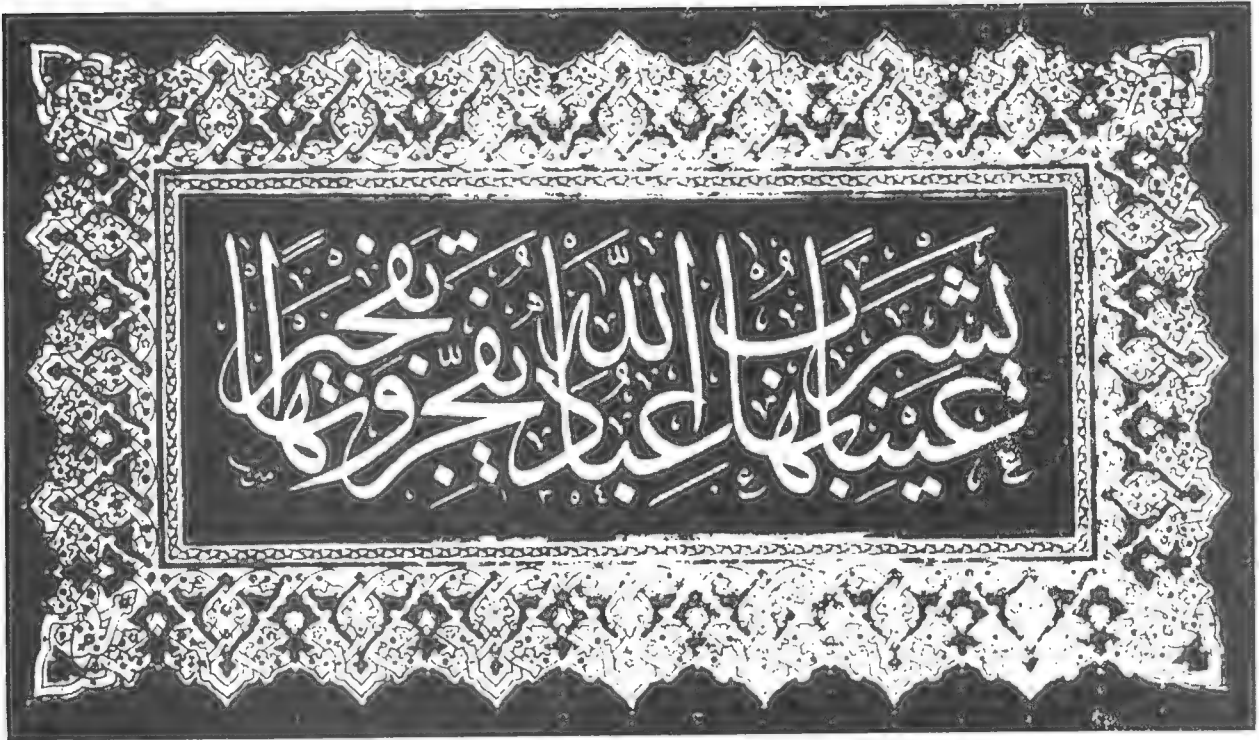 عَيْنًا يَشْرَبُ بِهَا عِبَادُ اللَّهِ يُفَجِّرُونَهَا تَفْجِيرًا